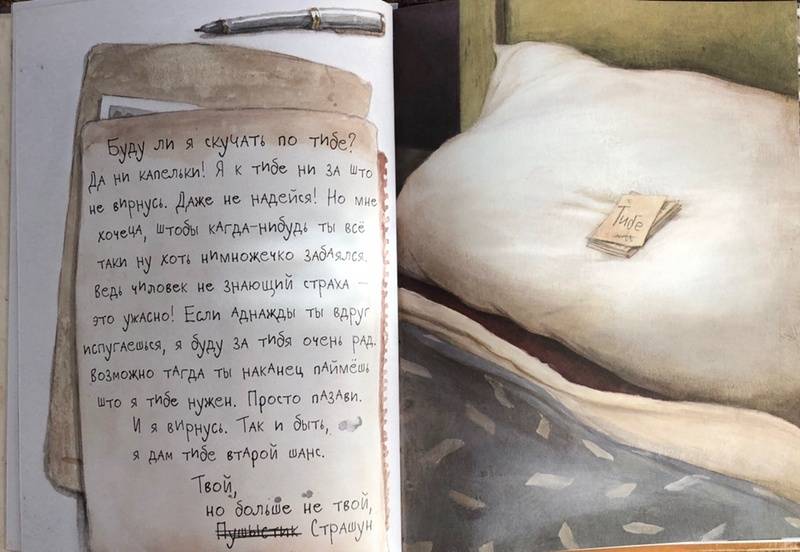 Буду ли я скучать по тибе?
Да ни капельки! Я к тибе ни за што
не вирнусь. Даже не надейся! Но мне
хочеца, штобы кагда-нибудь ты всё
таки ну хоть нимножечко забаялся.
Ведь чиловек не знающий страха –
это ужасно! Если аднажды ты вдруг
испугаешься, я буду за тибя очень рад.
Возможно тагда ты наканец паймёшь
што я тибе нужен. Просто пазави.
И я вирнусь. Так и быть,
я дам тибе втарой шанс.
Твой,
но больше не твой,
Пушыстик Страшун
Тибе